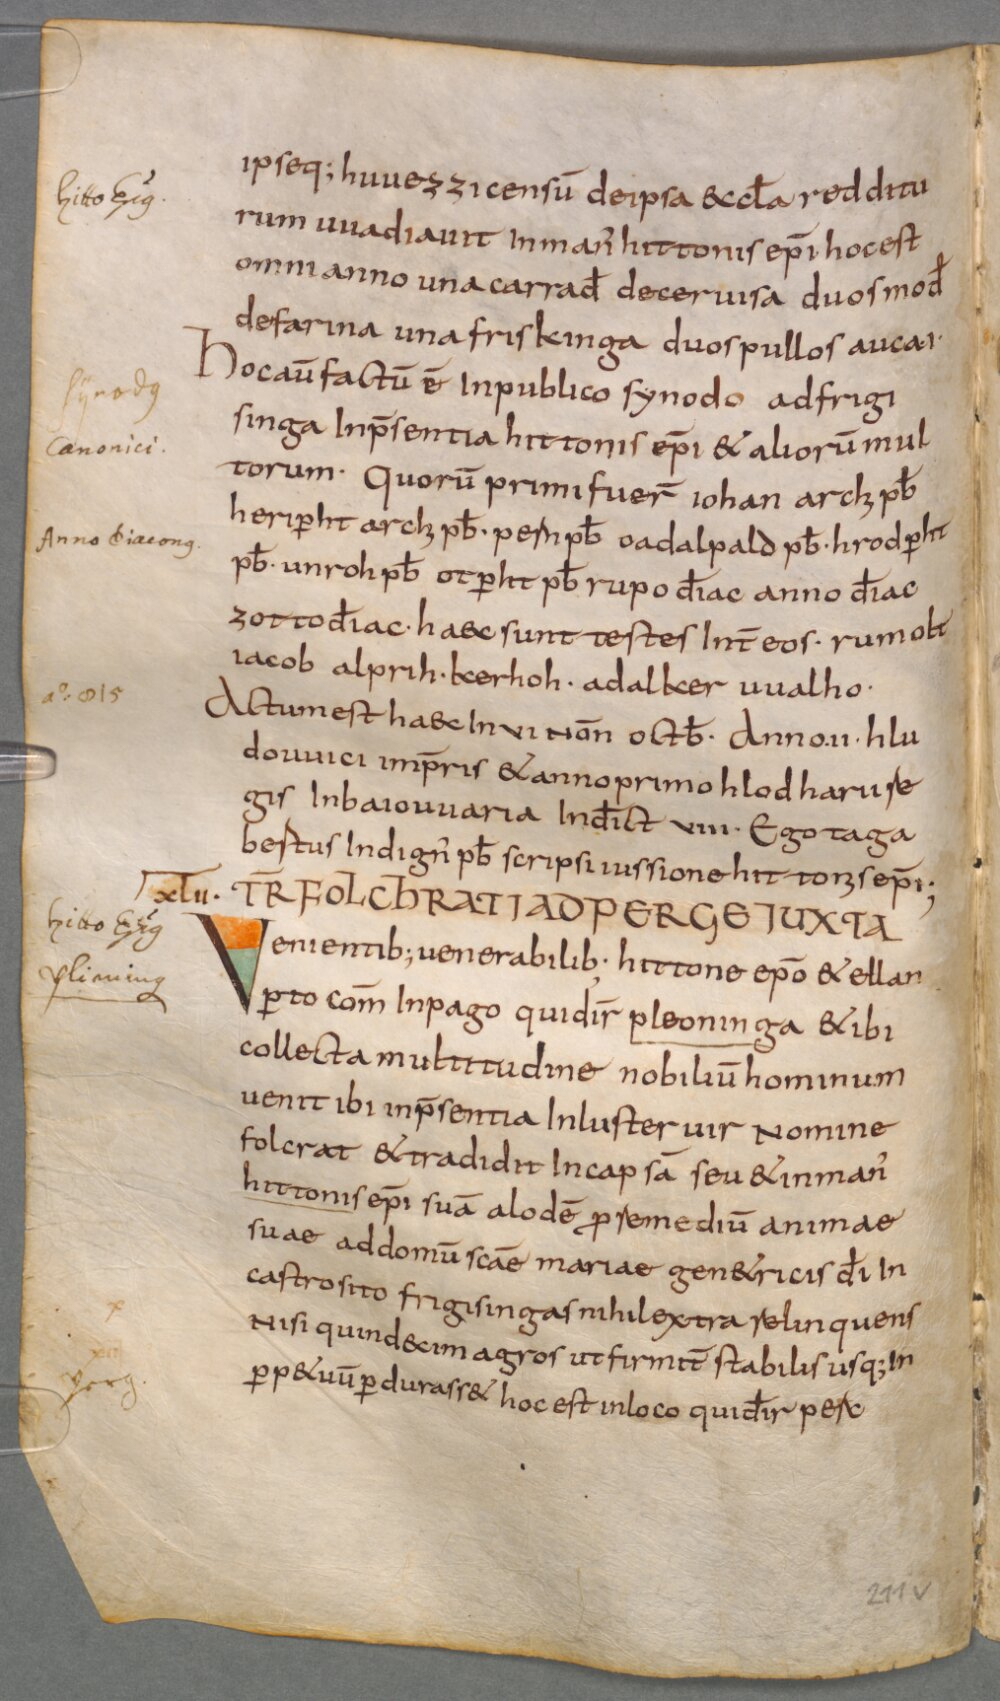 hitto Ep̄s.
ipseq; huuezzi censū deipsa &ccl̄a redditu
rum uuadiauit In man̄ hittonis ep̄i hocest
omni anno una carrad̄ deceruisa duos mod̄
defarina una friskinga duos pullos aucai·
Hocaū factū ē In publico synodo adfrigi
Synodus
singa Inp̄sentia hittonis ep̄i & aliorū mul
Canonici.
torum· Quorū primi fuer̄ iohan archpb̄
heripht archpb̄· pern pb̄ oadalpald pb̄· hrodpht
Anno diacong.
pb̄· unroh pb̄ otpht pb̄ rupo d̄iac anno d̄iac
zotto d̄iac· haec sunt testes Int̄ eos· rumolt
iacob alprih· kerhoh· adalker uualho·
aᵒ. 815
Actum est haec In vi Nōn octb̄· Anno·ii· hlu
douuici imp̄ris & anno primo hlodharii re
gis Inbaiouuaria Ind̄ict viii· Ego taga
bertus Indign̄ pb̄ scripsi iussione hittonis ep̄i;
xlu. TR̄ FOLCHRATI AD PERGE IUXTA
hitto Ep̄s
Venientib; uenerabilib· hittone ep̄o & ellan
pliening
pto com̄ Inpago quidir̄ pleoninga & ibi
collecta multitudine nobiliū hominum
uenit ibi inp̄sentia Inluster uir Nomine
folcrat & tradidit In capsā seu & in man̄
hittonis ep̄i suā alodē premediū animae
suae ad domū scāe mariae gen&ricis d̄i In
castro sito frigisingas nihil extra relinquens
Nisi quindecim agros ut firmit̄ stabilis usq; In
pp&uū pdurass& hoc est inloco quidir̄ perc
perg.
211 v